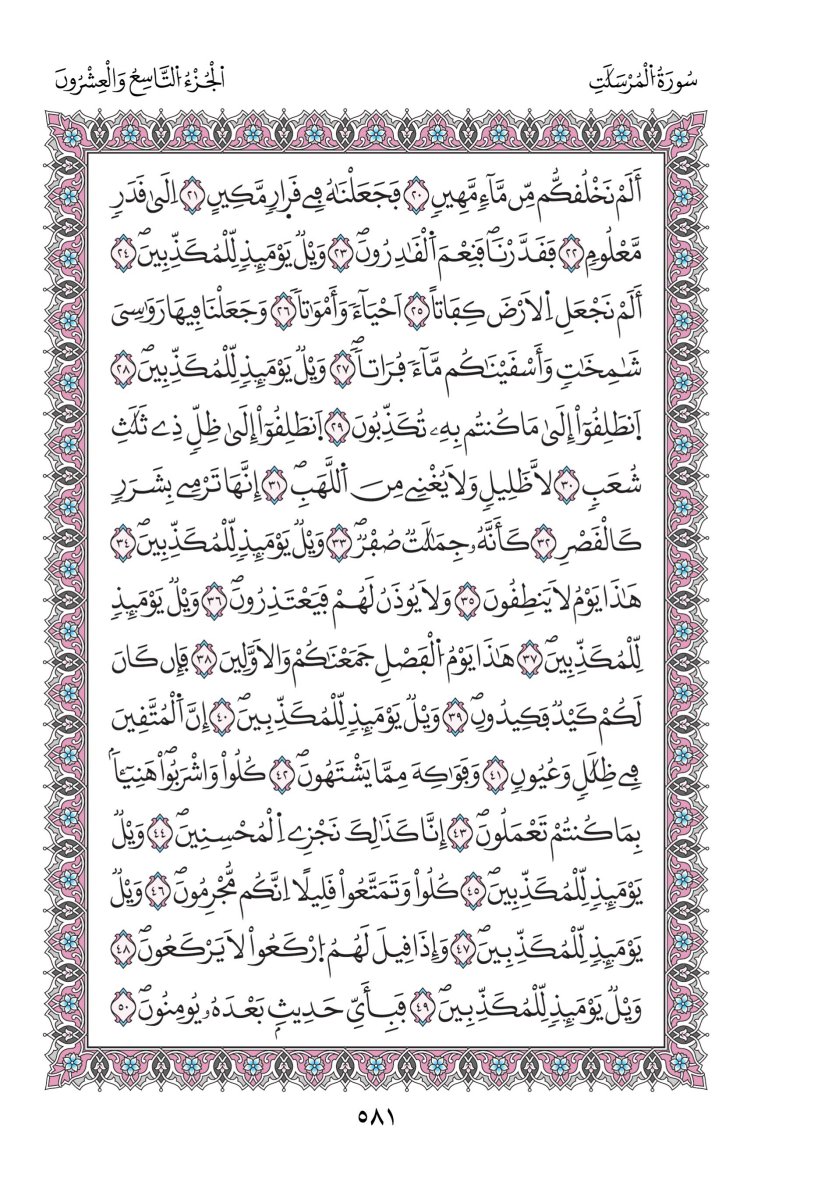 سُورَةُ اُ۬لْمُرْسَلَٰتِ
اَ۬لْجُزْءُ اُ۬لتَّاسِعُ وَالْعِشْرُونَ
أَلَمْ نَخْلُقكُّم مِّن مَّآءٖ مَّهِينٖ ٢٠ فَجَعَلْنَٰهُ فِے قَرَارٖ مَّكِينٍ ٢١ اِلَىٰ قَدَرٖ
مَّعْلُومٖ ٢٢ فَقَدَّرْنَاۖ فَنِعْمَ اَ۬لْقَٰدِرُونَۖ ٢٣ وَيْلٞ يَوْمَئِذٖ لِّلْمُكَذِّبِينَۖ ٢٤
أَلَمْ نَجْعَلِ اِ۬لَارْضَ كِفَاتاً ٢٥ اَحْيَآءٗ وَأَمْوَٰتاٗ ٢٦ وَجَعَلْنَا فِيهَا رَوَٰسِيَ
شَٰمِخَٰتٖ وَأَسْقَيْنَٰكُم مَّآءٗ فُرَاتاٗۖ ٢٧ وَيْلٞ يَوْمَئِذٖ لِّلْمُكَذِّبِينَۖ ٢٨
اَ۪نطَلِقُوٓاْ إِلَىٰ مَا كُنتُم بِهِۦ تُكَذِّبُونَ ٢٩ اَ۪نطَلِقُوٓاْ إِلَىٰ ظِلّٖ ذِے ثَلَٰثِ
شُعَبٖ ٣٠ لَّا ظَلِيلٖ وَلَا يُغْنِے مِنَ اَ۬للَّهَبِۖ ٣١ إِنَّهَا تَرْمِے بِشَرَرٖ
كَالْقَصْرِ ٣٢ كَأَنَّهُۥ جِمَٰلَٰتٞ صُفْرٞۖ ٣٣ وَيْلٞ يَوْمَئِذٖ لِّلْمُكَذِّبِينَۖ ٣٤
هَٰذَا يَوْمُ لَا يَنطِقُونَ ٣٥ وَلَا يُوذَنُ لَهُمْ فَيَعْتَذِرُونَۖ ٣٦ وَيْلٞ يَوْمَئِذٖ
لِّلْمُكَذِّبِينَۖ ٣٧ هَٰذَا يَوْمُ اُ۬لْفَصْلِ جَمَعْنَٰكُمْ وَالَاوَّلِينَۖ ٣٨ فَإِن كَانَ
لَكُمْ كَيْدٞ فَكِيدُونِۖ ٣٩ وَيْلٞ يَوْمَئِذٖ لِّلْمُكَذِّبِينَۖ ٤٠ إِنَّ اَ۬لْمُتَّقِينَ
فِے ظِلَٰلٖ وَعُيُونٖ ٤١ وَفَوَٰكِهَ مِمَّا يَشْتَهُونَۖ ٤٢ كُلُواْ وَاشْرَبُواْ هَنِيٓـٔاَۢ
بِمَا كُنتُمْ تَعْمَلُونَۖ ٤٣ إِنَّا كَذَٰلِكَ نَجْزِے اِ۬لْمُحْسِنِينَۖ ٤٤ وَيْلٞ
يَوْمَئِذٖ لِّلْمُكَذِّبِينَۖ ٤٥ كُلُواْ وَتَمَتَّعُواْ قَلِيلًا اِنَّكُم مُّجْرِمُونَۖ ٤٦ وَيْلٞ
يَوْمَئِذٖ لِّلْمُكَذِّبِينَۖ ٤٧ وَإِذَا قِيلَ لَهُمُ اُ۪رْكَعُواْ لَا يَرْكَعُونَۖ ٤٨
وَيْلٞ يَوْمَئِذٖ لِّلْمُكَذِّبِينَۖ ٤٩ فَبِأَيِّ حَدِيثِۢ بَعْدَهُۥ يُومِنُونَۖ ٥٠
٥٨١